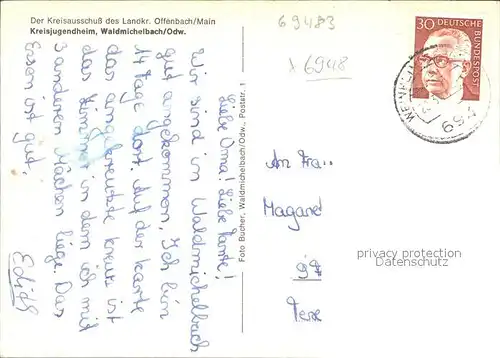 Der Kreisausschuß des Landkr. Offenbach/Main
Kreisjugendheim, Waldmichelbach/Odw.
Liebe Oma! Liebe Tante!
Wir sind in Waldmichelbach
gut angekommen, Ich bin
14 tage dort. Auf der Karte
das angekreutzte kreuz ist
das Zimmer in dem ich mit
3 anderen Mächen liege. Das
Essen ist gut.
Edith
Foto Bucher, Waldmichelbach/Odw., Poststr. 1
69483
x 6948
30 DEUTSCHE
BUNDESPOST
694
An Frau
Magaret
privacy protection
Datenschutz